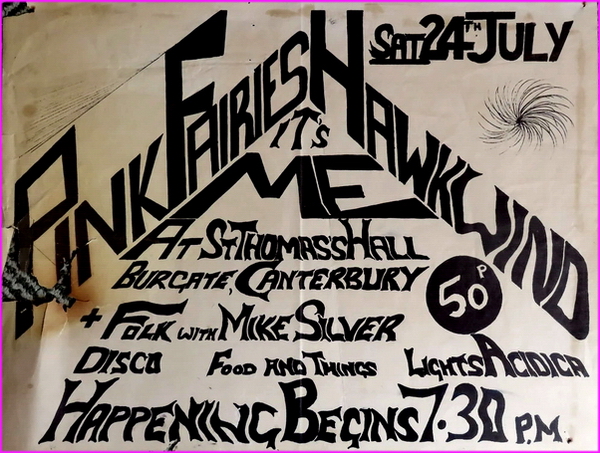 SAT 24TH JULY
PINK FAIRIES HAWKWIND
IT'S
ME
AT ST THOMASS HALL
BURGATE, CANTERBURY
50P
+ FOLK WITH MIKE SILVER
DISCO FOOD AND THINGS LIGHTS ACIDICA
HAPPENING BEGINS 7.30 P.M.